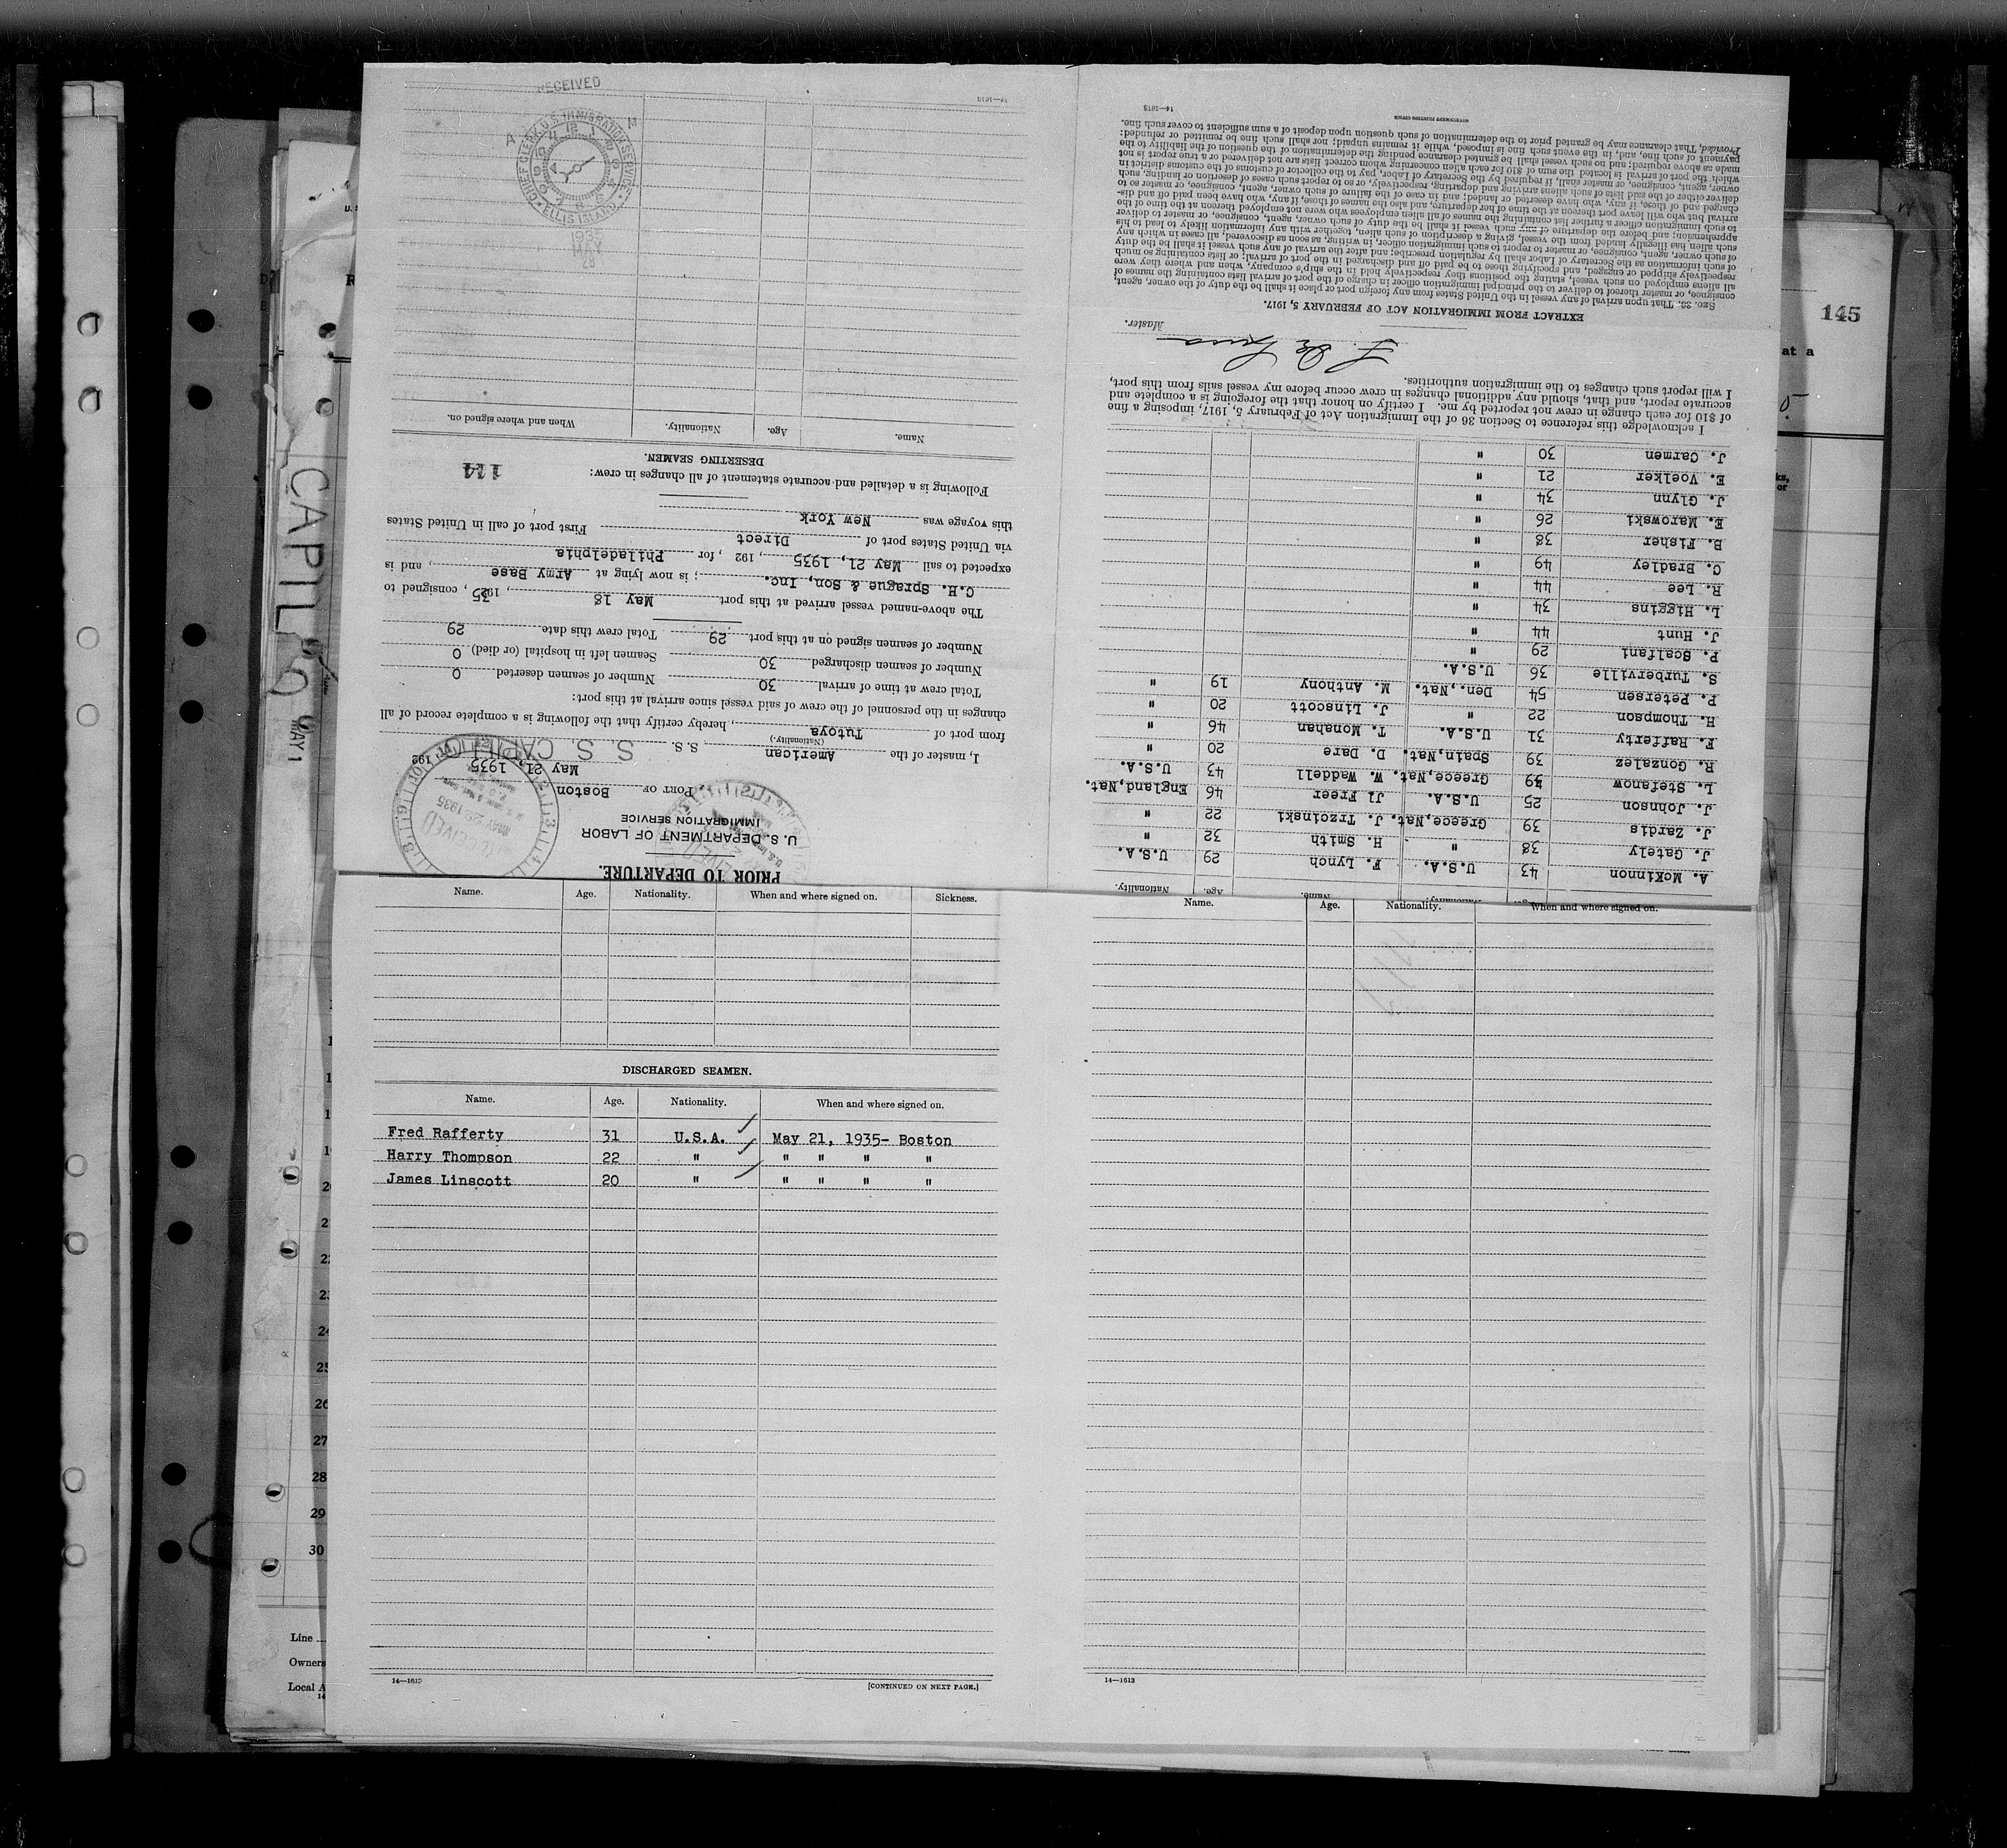 PRIOR TO DEPARTURE.
U. S. DEPARTMENT OF LABOR
IMMIGRATION SERVICE
PORT OF Boston,
May 21, 1935 , 192
I, master of the American S. S. S. S. CAPILLO
(Nationality.)
from port of Tutoya, hereby certify that the following is a complete record of all
changes in the personnel of the crew of said vessel since arrival at this port:
Total crew at time of arrival 30 Number of seamen deserted 0
Number of seamen discharged 30 Seamen left in hospital (or died) 0
Number of seamen signed on at this port 29 Total crew this date 29
The above-named vessel arrived at this port May 18, 1935, consigned to
C.H. Sprague & Son, Inc.; is now lying at Army Base, and is
expected to sail May 21, 1935, 192 , for Philadelphia
via United States port of Direct First port of call in United States
this voyage was New York
Following is a detailed and accurate statement of all changes in crew:
114
DESERTING SEAMEN.
Name. Age. Nationality. When and where signed on.
RECEIVED
A M
CHIEF CLERK U.S. IMMIGRATION SERVICE
ELLIS ISLAND
1935
MAY
28
14—1613
RECEIVED
MAY 29 1935
Name. Age. Nationality. Name. Age. Nationality.
A. McKinnon 43 U.S.A. F. Lynch 29 U.S.A.
J. Gately 38 " H. Smith 32 "
J. Zardis 39 Greece,Nat. J. Trzcinski 22 "
J. Johnson 25 U.S.A. Jl Freer 46 England,Nat.
L. Stefanow 39 Greece,Nat. W. Waddell 43 U.S.A.
R. Gonzalez 39 Spain,Nat. D. Dare 20 "
F. Rafferty 31 U.S.A. T. Monahan 46 "
H. Thompson 22 " J. Linscott 20 "
P. Petersen 54 Den.,Nat. M. Anthony 19 "
S. Turberville 36 U.S.A.
P. Scalfani 29 "
J. Hunt 44 "
L. Higgins 34 "
R. Lee 44 "
C. Bradley 49 "
B. Fisher 38 "
E. Marowski 26 "
J. Glynn 34 "
E. Voelker 21 "
J. Carmen 30 "
I acknowledge this reference to Section 36 of the Immigration Act of February 5, 1917, imposing a fine
of $10 for each change in crew not reported by me. I certify on honor that the foregoing is a complete and
accurate report, and that, should any additional changes in crew occur before my vessel sails from this port,
I will report such changes to the immigration authorities.
Master.
EXTRACT FROM IMMIGRATION ACT OF FEBRUARY 5, 1917.
Sec. 36. That upon arrival of any vessel in the United States from any foreign port or place it shall be the duty of the owner, agent,
consignee, or master thereof to deliver to the principal immigration officer in charge of the port of arrival lists containing the names of
all aliens employed on such vessel, stating the positions they respectively hold in the ship's company, when and where they were
respectively shipped or engaged, and specifying those to be paid off and discharged in the port of arrival; or lists containing so much
of such information as the Secretary of Labor shall by regulation prescribe; and after the arrival of any such vessel it shall be the duty
of such owner, agent, consignee, or master to report to such immigration officer, in writing, as soon as discovered, all cases in which any
such alien has illegally landed from the vessel, giving a description of such alien, together with any information likely to lead to his
apprehension; and before the departure of any such vessel it shall be the duty of such owner, agent, consignee, or master to deliver
to such immigration officer a further list containing the names of all alien employees who were not employed thereon at the time of the
arrival but who will leave port thereon at the time of her departure, and also the names of those, if any, who have been paid off and dis-
charged and of those, if any, who have deserted or landed; and in case of the failure of such owner, agent, consignee, or master so to
deliver either of the said lists of such aliens arriving and departing, respectively, or so to report such cases of desertion or landing, such
owner, agent, consignee, or master shall, if required by the Secretary of Labor, pay to the collector of customs of the customs district in
which the port of arrival is located the sum of $10 for each alien concerning whom correct lists are not delivered or a true report is not
made as above required; and no such vessel shall be granted clearance pending the determination of the question of the liability to the
payment of such fine, and, in the event such fine is imposed, while it remains unpaid; nor shall such fine be remitted or refunded:
Provided, That clearance may be granted prior to the determination of such question upon deposit of a sum sufficient to cover such fine.
GOVERNMENT PRINTING OFFICE
14—1613
CAPILLO
MAY 1
145
at a
Name. Age. Nationality. When and where signed on. Sickness.
DISCHARGED SEAMEN.
Name. Age. Nationality. When and where signed on.
Fred Rafferty 31 U.S.A. May 21, 1935- Boston
Harry Thompson 22 " " " " "
James Linscott 20 " " " " "
14—1613 [CONTINUED ON NEXT PAGE.]
Name. Age. Nationality. When and where signed on.
14—1613
23
24
25
26
27
28
29
30
Line
Owners
Local A